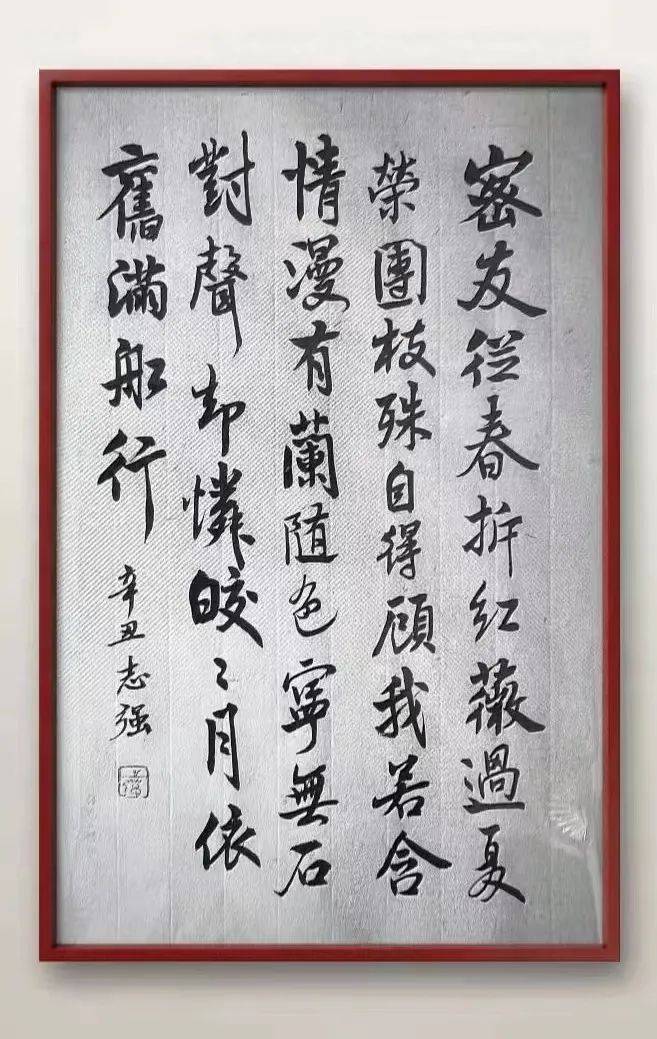 密友從春拆紅薇過夏
榮團枝殊自得顧我若含
情漫有蘭隨色寧無石
對聲却憐皎〻月依
舊滿船行
辛丑志强